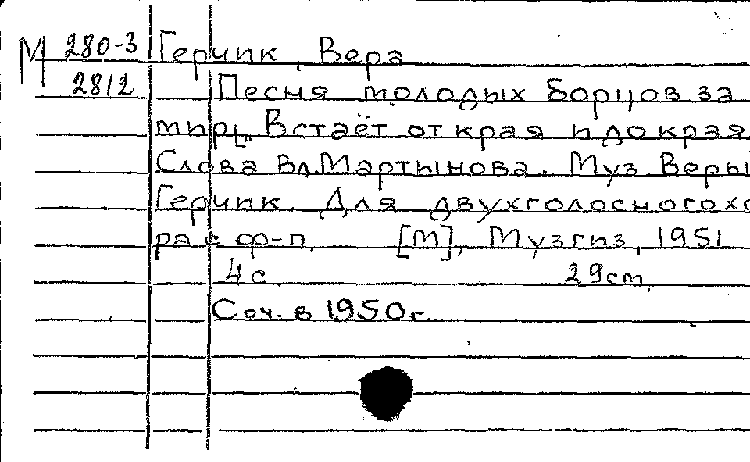 М 280-3 Герчик, Вера
2812 Песня молодых борцов за
мир[. Встаёт от края и до края
Слова Вл. Мартынова. Муз Веры
Герчик. Для двухголосного хо
ра с ф-п. [М], Музгиз, 1951
4 с 29 cm.
Соч. в 1950 г.